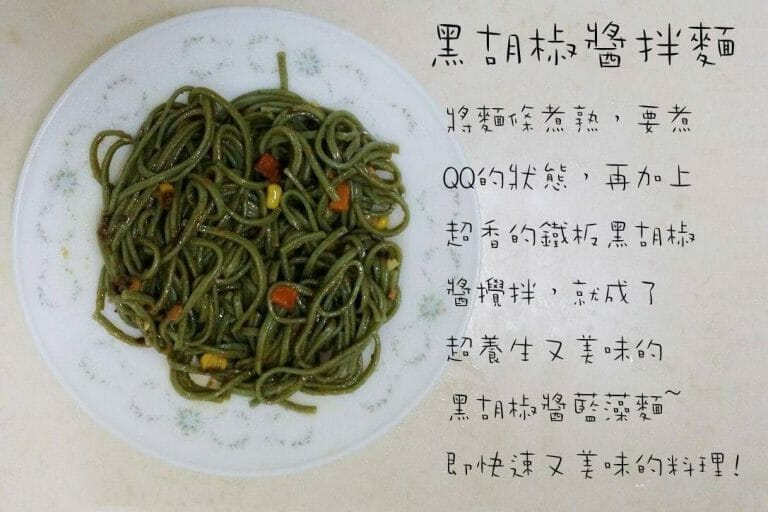 黑胡椒醬拌麵
將麵條煮熟，要煮
QQ的狀態，再加上
超香的鐵板黑胡椒
醬攪拌，就成了
超養生又美味的
黑胡椒醬藍藻麵~
即快速又美味的料理!